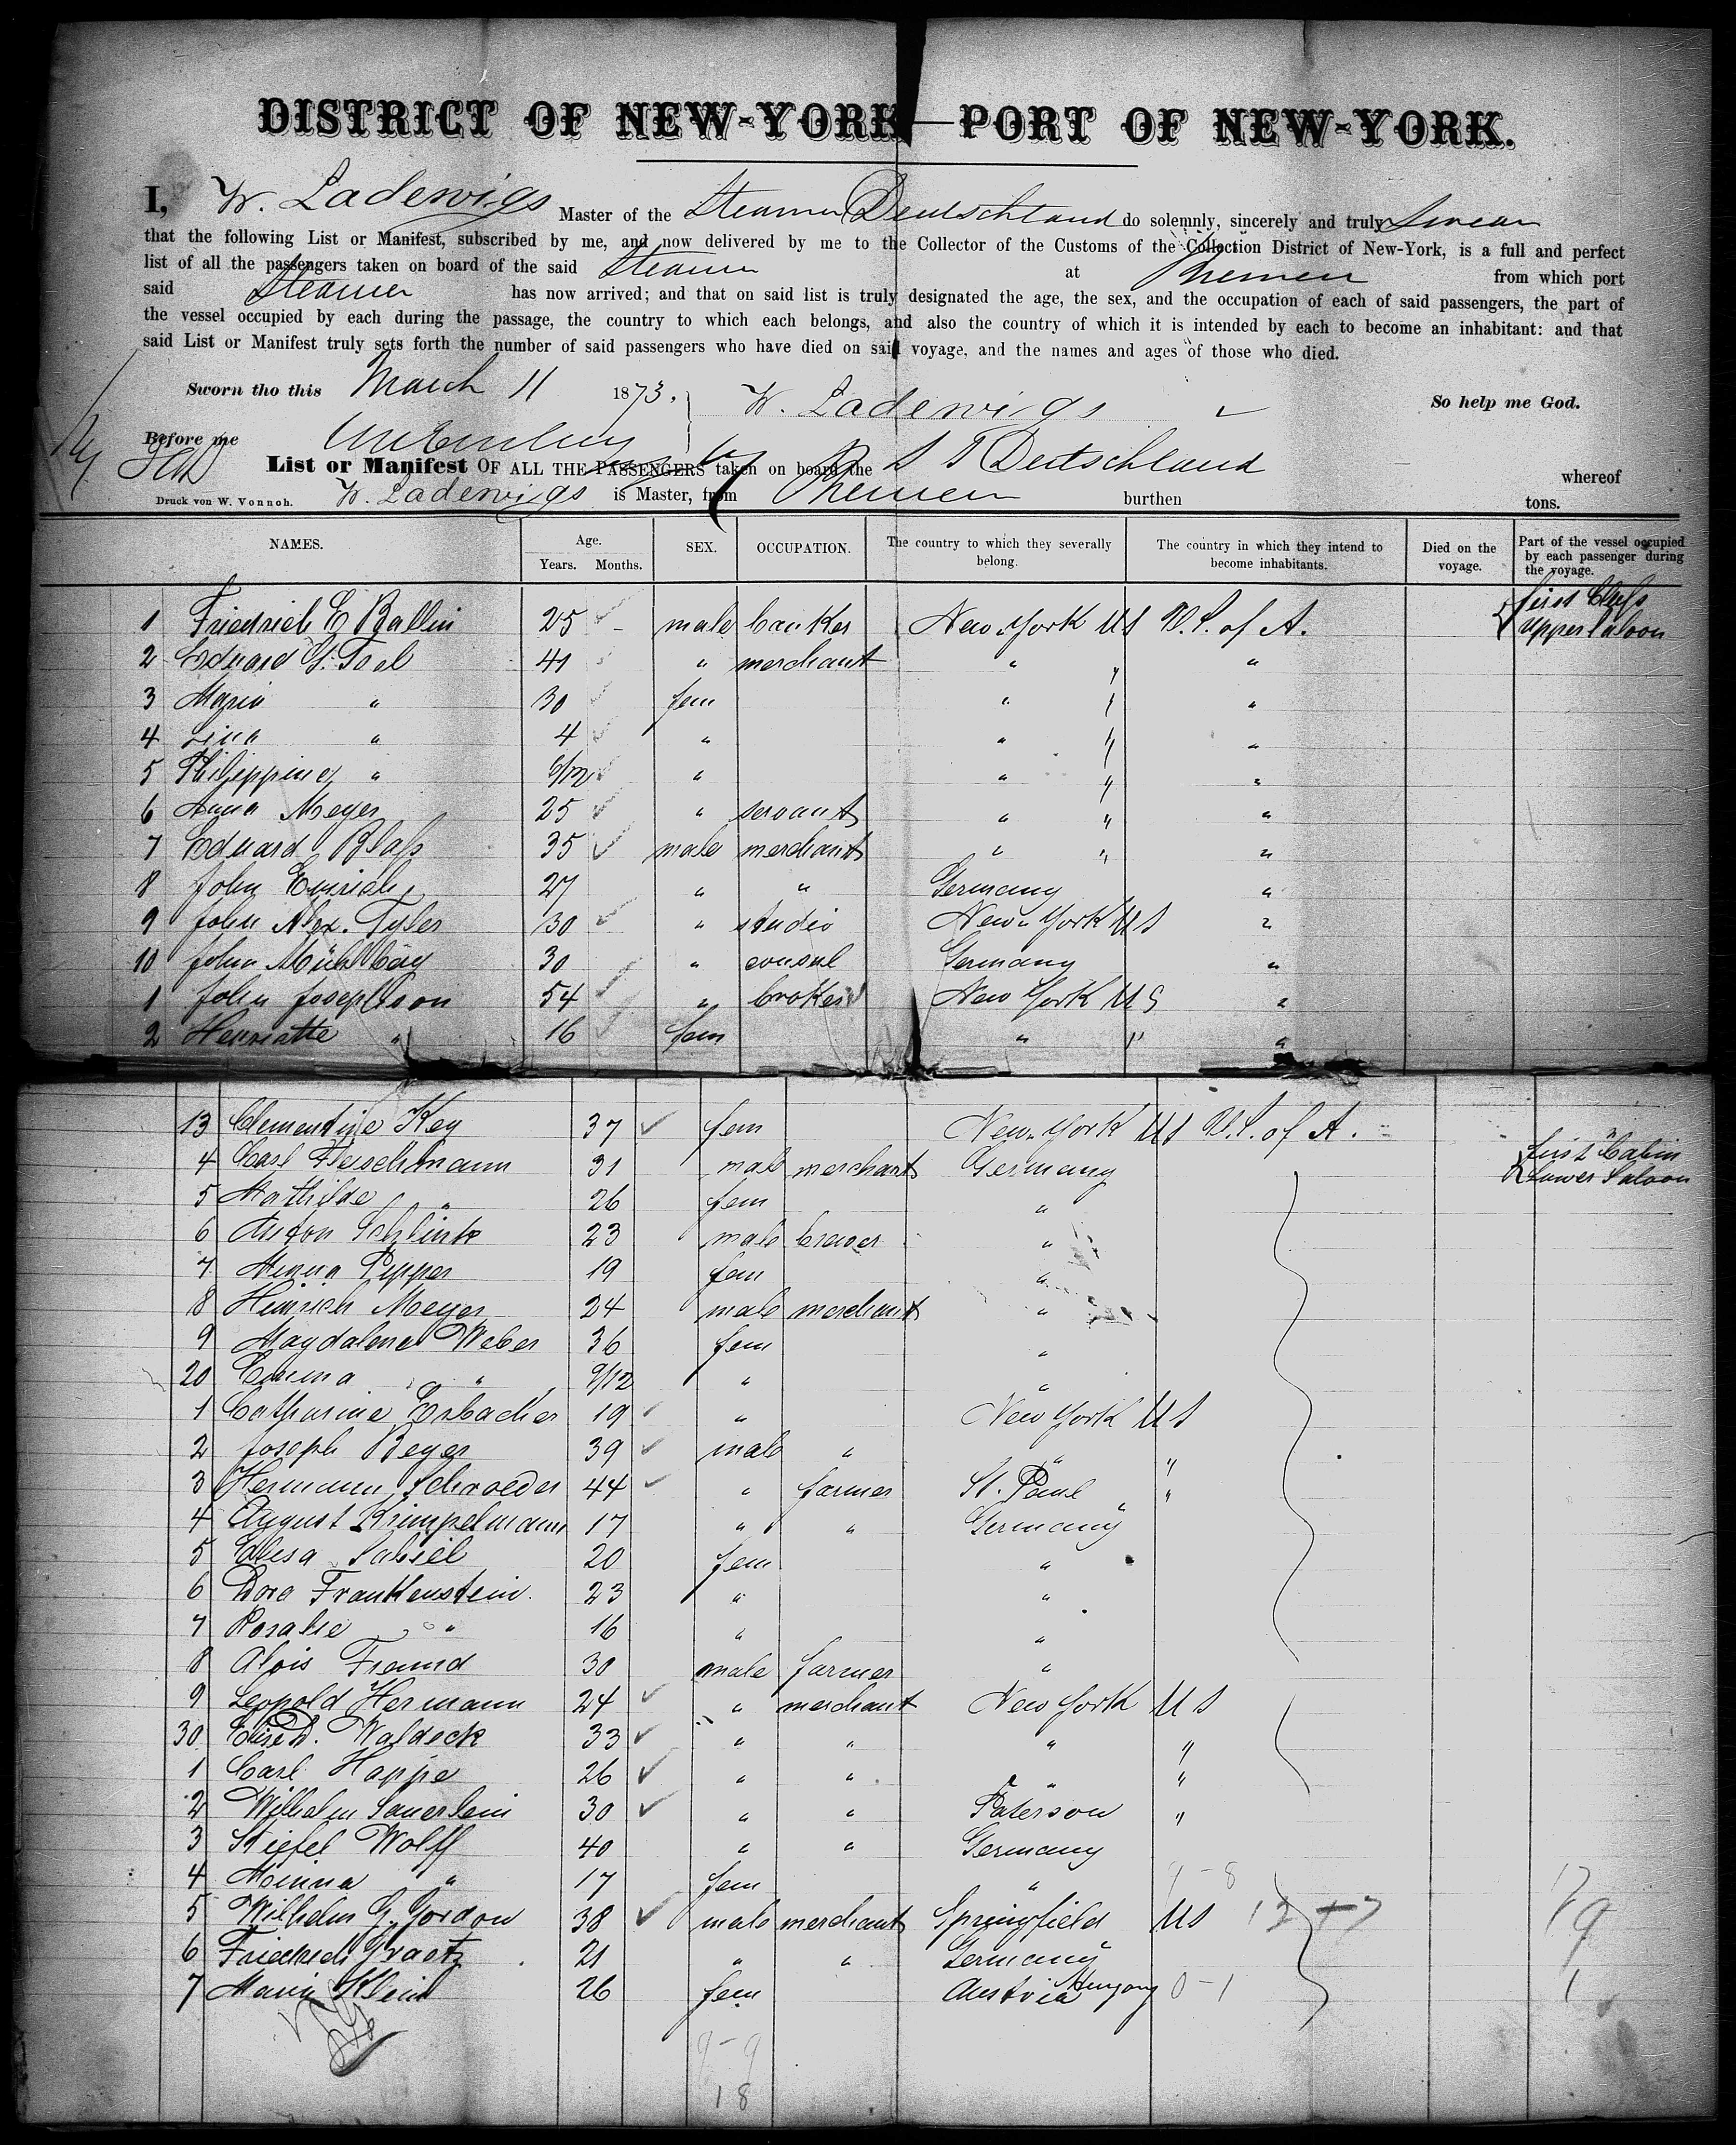 DISTRICT OF NEW-YORK—PORT OF NEW-YORK.
I, W. Ladewigs Master of the Steamer Deutschland do solemnly, sincerely and truly swear
that the following List or Manifest, subscribed by me, and now delivered by me to the Collector of the Customs of the Collection District of New-York, is a full and perfect
list of all the passengers taken on board of the said Steamer at Bremen from which port
said Steamer has now arrived; and that on said list is truly designated the age, the sex, and the occupation of each of said passengers, the part of
the vessel occupied by each during the passage, the country to which each belongs, and also the country of which it is intended by each to become an inhabitant: and that
said List or Manifest truly sets forth the number of said passengers who have died on said voyage, and the names and ages of those who died.
Sworn tho this March 11 1873. W. Ladewigs So help me God.
Before me
List or Manifest OF ALL THE PASSENGERS taken on board the S S Deutschland whereof
Druck von W. Vonnoh. W. Ladewigs is Master, from Bremen burthen tons.
NAMES. Age. Years. Months. SEX. OCCUPATION. The country to which they severally belong. The country in which they intend to become inhabitants. Died on the voyage. Part of the vessel occupied by each passenger during the voyage.
1 Friedrich E Ballin 25 - male banker New-York US U.S. of A. first Class Upper Saloon
2 Eduard G. 41 " merchant " " "
3 Maria " 30 fem " " "
4 Lina " 4 " " " "
5 Philippine " 6/12 " " " "
6 Anna Meyer 25 " servant " " "
7 Eduard Blaß 35 male merchant " " "
8 John Emrich 27 " " Germany "
9 John Alex. Tyler 30 " studio New-York US "
10 John 30 " consul Germany "
1 John Josephson 54 " broker New York US "
2 Henriette " 16 fem " " "
13 Clementine Key 37 fem New-York US U.S. of A. "
4 Carl Fleischmann 31 male merchant Germany first Cabin Lower Saloon
5 Mathilde " 26 fem "
6 Anton 23 male brewer "
7 Minna Pepper 19 fem "
8 Heinrich Meyer 24 male merchant "
9 Magdalena Weber 36 fem "
20 Emma " 9/12 " "
1 Catharine Erbacher 19 " New York US
2 Joseph Beyer 39 male " " "
3 Hermann Schroeder 44 " farmer St. Paul "
4 August Krimpelmann 17 " " Germany "
5 20 fem "
6 Dora Frankenstein. 23 " "
7 Rosalie " 16 " "
8 Alois Freund 30 male farmer "
9 Leopold Hermann 24 " merchant New York US
30 D. Waldeck 33 " " " "
1 Carl Hoppe 26 " " " "
2 Wilhelm Sauerlein 30 " " Paterson "
3 Stiefel Wolff 40 " " Germany
4 Minna " 17 fem " 9-8 17
5 Wilhelm G. Gordon 38 male merchant Springfield US 12 + 7 19
6 Friedrich Graetz 21 " " Germany
7 Maria Klein 26 fem Austria Hungary 0-1 1
9-9
18